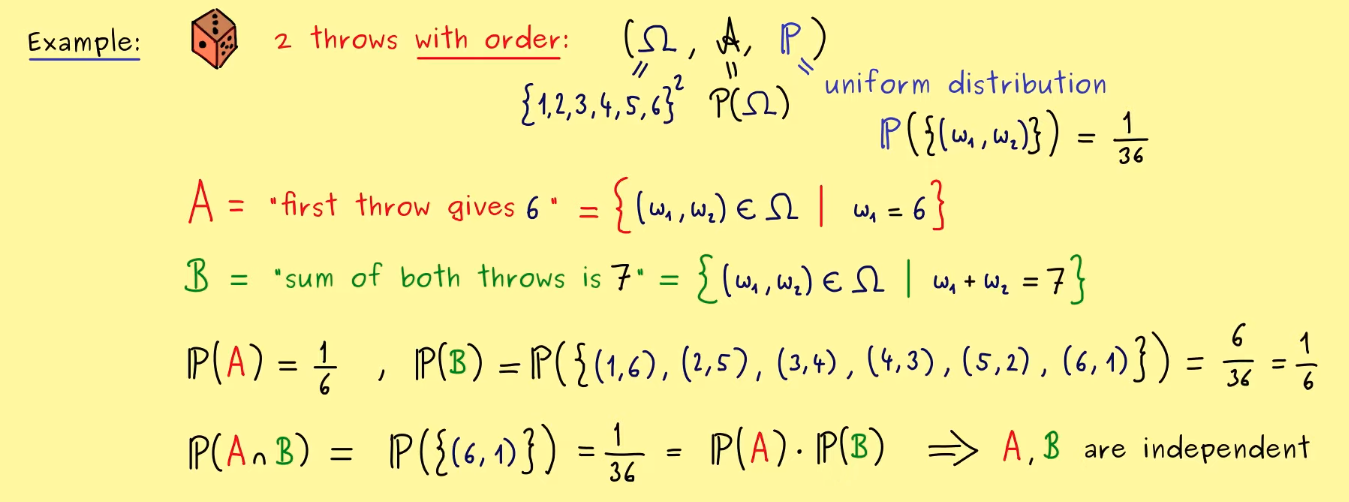 Example: 2 throws with order: (Ω, 𝒜, ℙ)
{1,2,3,4,5,6}² P(Ω) uniform distribution
ℙ({(ω₁,ω₂)}) = 1/36
A = "first throw gives 6" = {(ω₁,ω₂) ∈ Ω | ω₁ = 6}
B = "sum of both throws is 7" = {(ω₁,ω₂) ∈ Ω | ω₁ + ω₂ = 7}
ℙ(A) = 1/6 , ℙ(B) = ℙ({(1,6), (2,5), (3,4), (4,3), (5,2), (6,1)}) = 6/36 = 1/6
ℙ(A ∩ B) = ℙ({(6,1)}) = 1/36 = ℙ(A) · ℙ(B) ⟹ A, B are independent